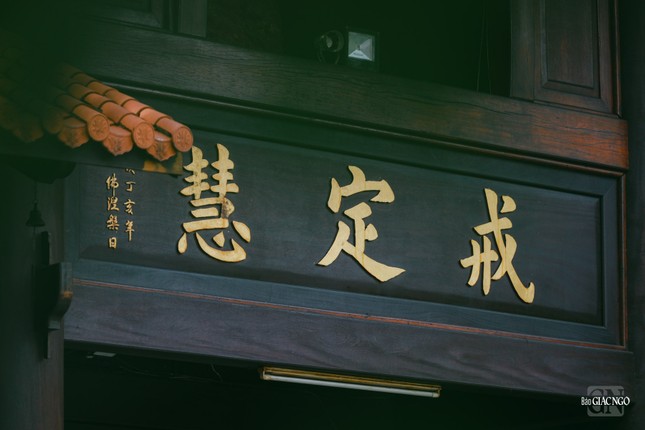 戒定慧
丁亥年
佛涅槃日
Báo GIÁC NGỘ
GN